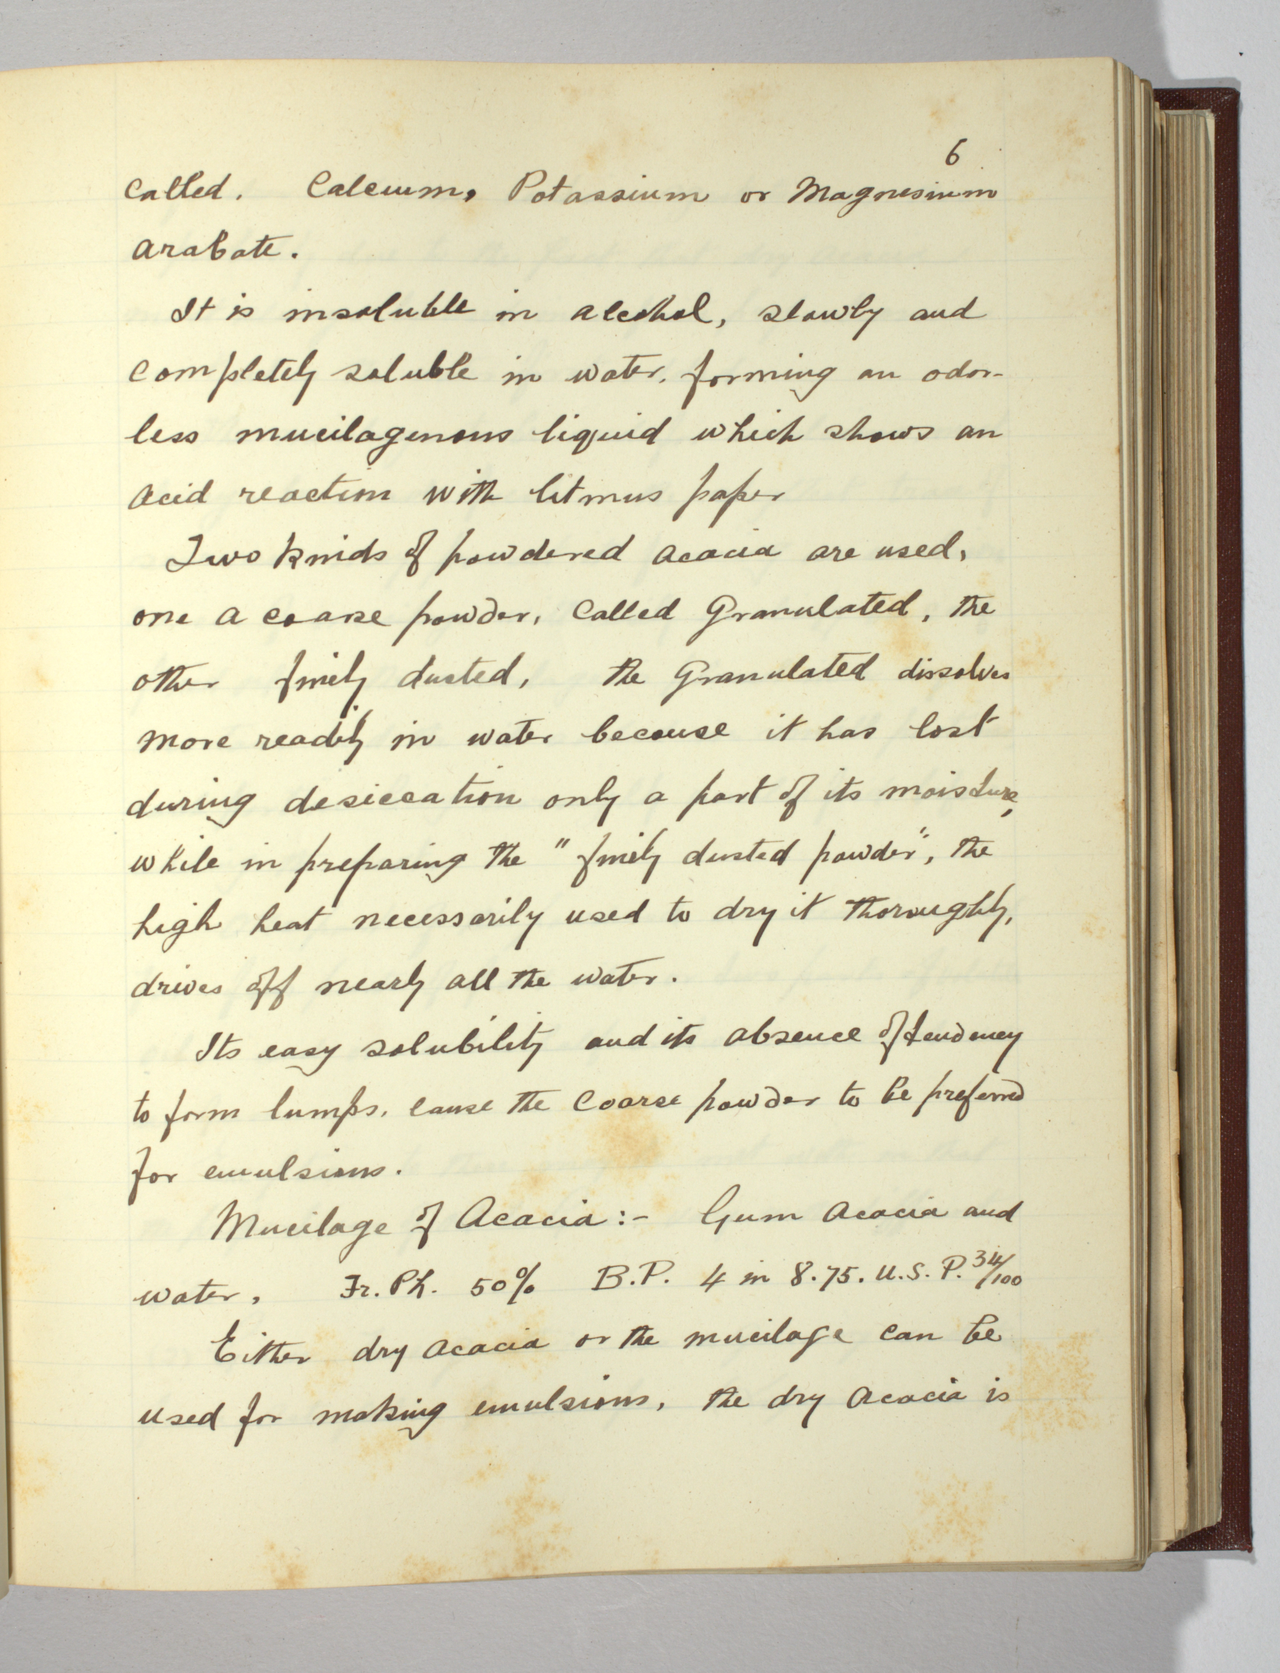 6
called. Calcium, Potassium or Magnesium
arabate.
It is insoluble in alcohol, slowly and
completely soluble in water, forming an odor-
less mucilagenous liquid which shows an
acid reaction with litmus paper
Two kinds of powdered acacia are used,
one a coarse powder, called Granulated, the
other finely dusted, the Granulated dissolves
more readily in water because it has lost
during desiccation only a part of its moisture,
while in preparing the "finely dusted powder", the
high heat necessarily used to dry it thoroughly,
drives off nearly all the water.
Its easy solubility and its absence of tendency
to form lumps, cause the coarse powder to be preferred
for emulsions.
Mucilage of Acacia:- Gum Acacia and
water, Fr. Ph. 50% B.P. 4 in 8.75. U.S.P. 34/100
Either dry acacia or the mucilage can be
used for making emulsions, the dry acacia is